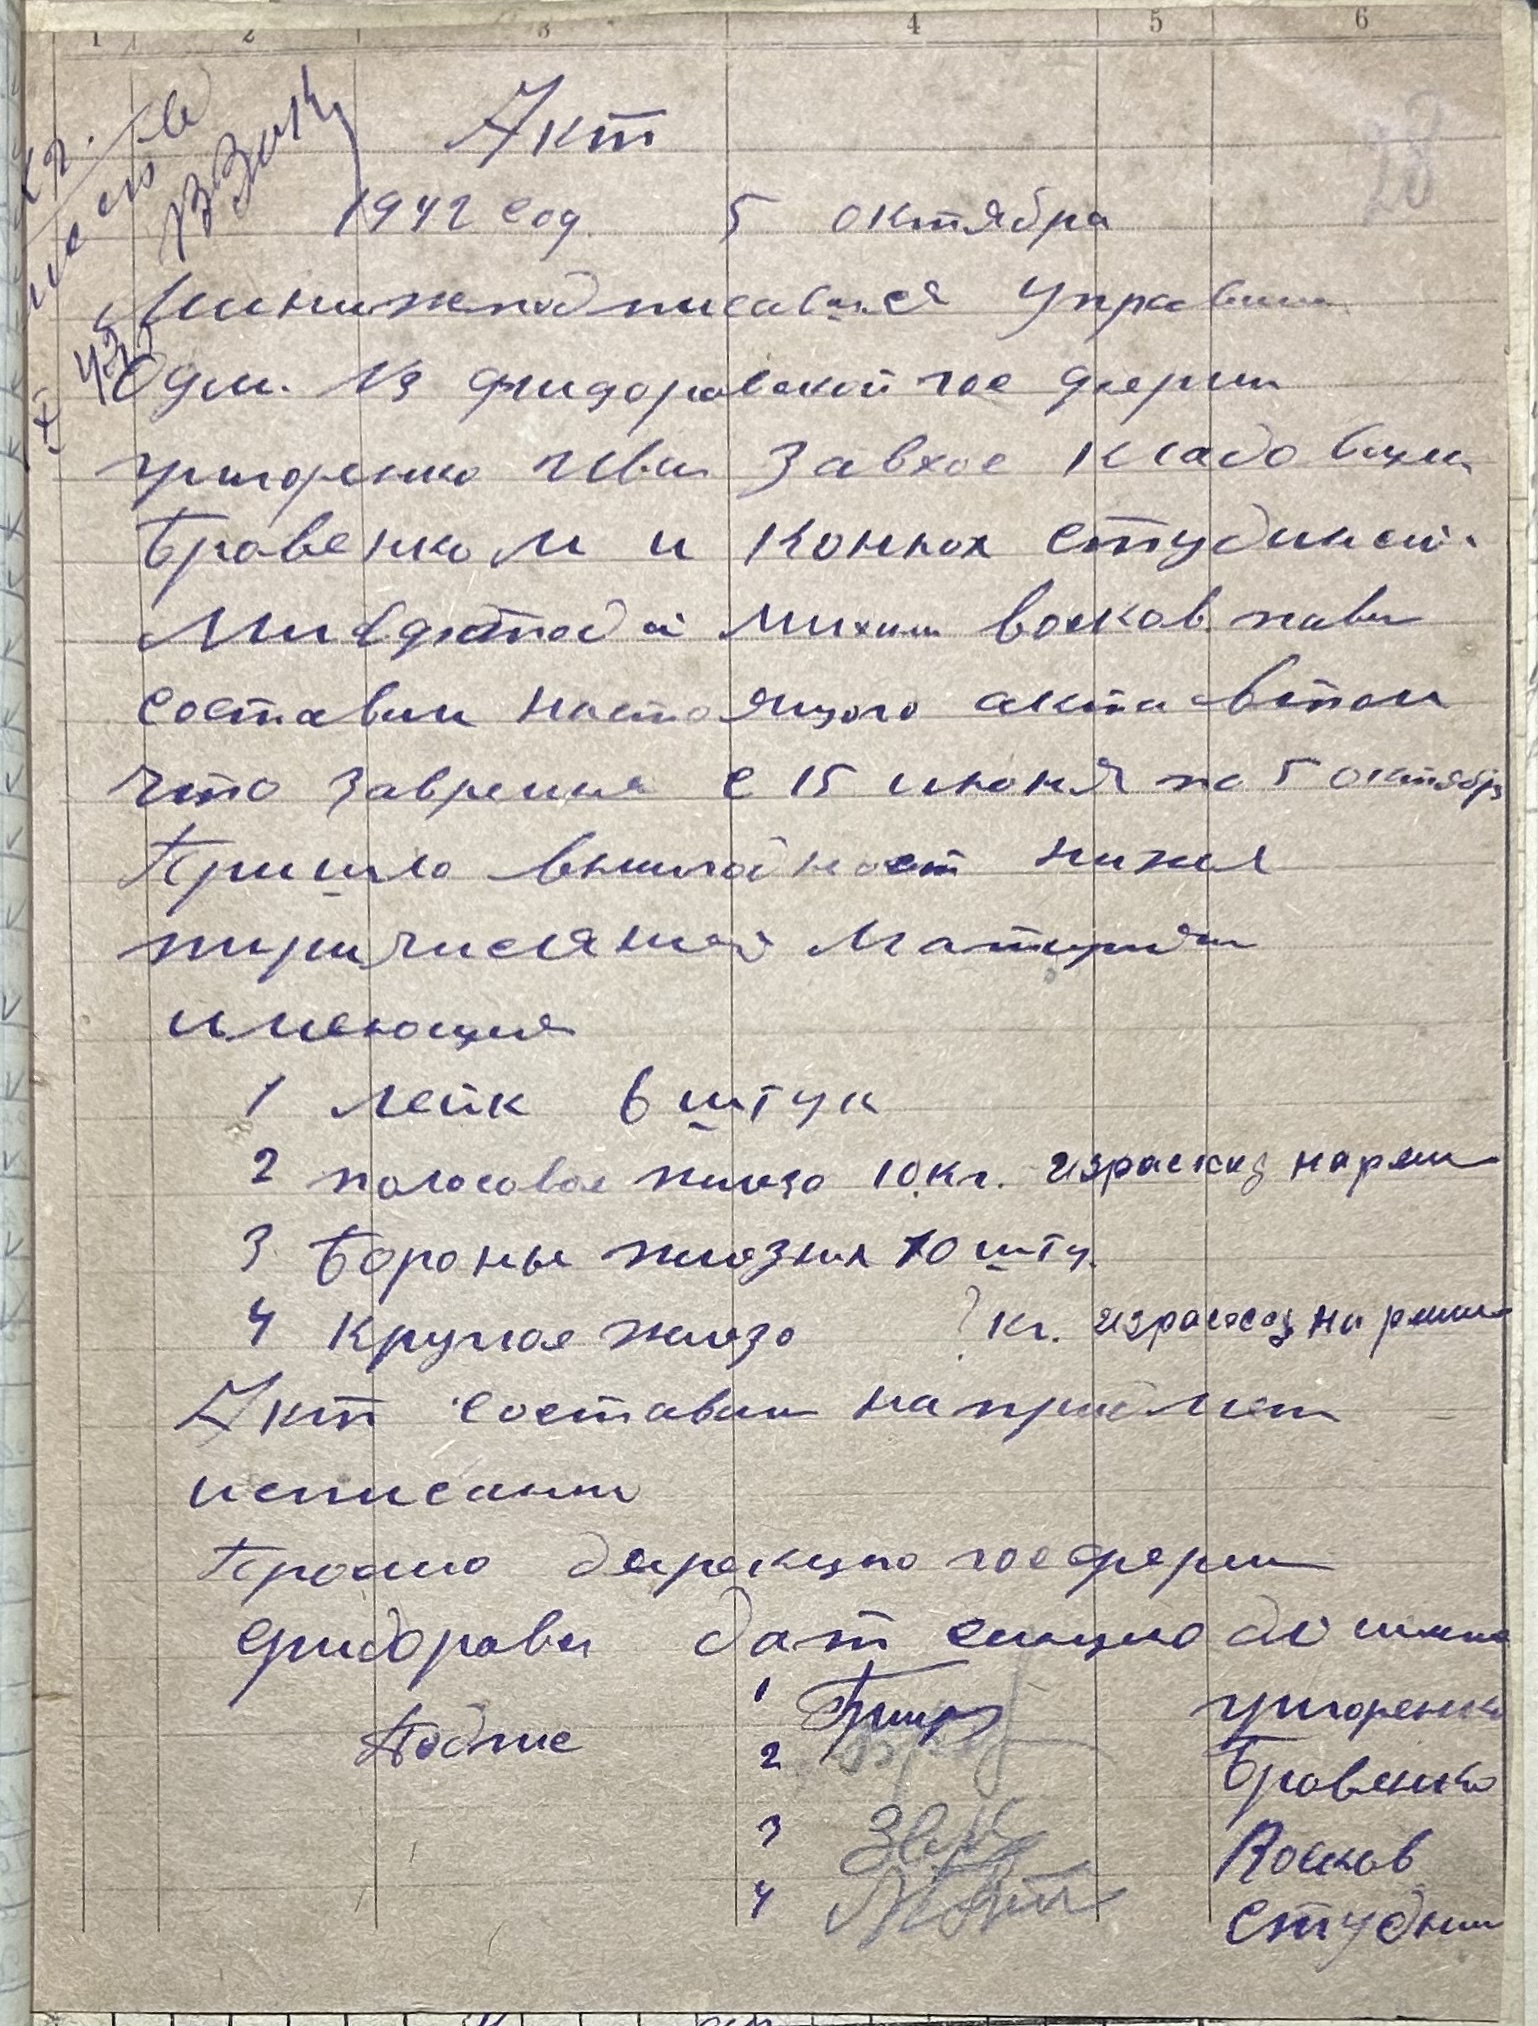 1 2 3 4 5 6
28
Акт
1942 год. 5 октября
Минижподписавшися Управин
Одм. 13 фидоровской гос ферми
григоренко Иван Завхос Кладовщик
Бровенком и Конюх Студинский
михаил восков. павил
составили настоящого акта втом
что заврения с 15 июня по 5 октября
Пришло вниигодност нижа
пиричисляние Материял
имеющия
1 Леик 6 штук
2 полосовое жилезо 10 кг. израсход на рем
3 Бороны жилезних 10 шту.
4 Круглое жилезо ? кг. израсход на рем
Акт составили на придмет
исписании
Просю дирекцию госферми
фидоровки дат
Подпис 1 григоренко
2 Бровенко
3 Восков
4 Студин